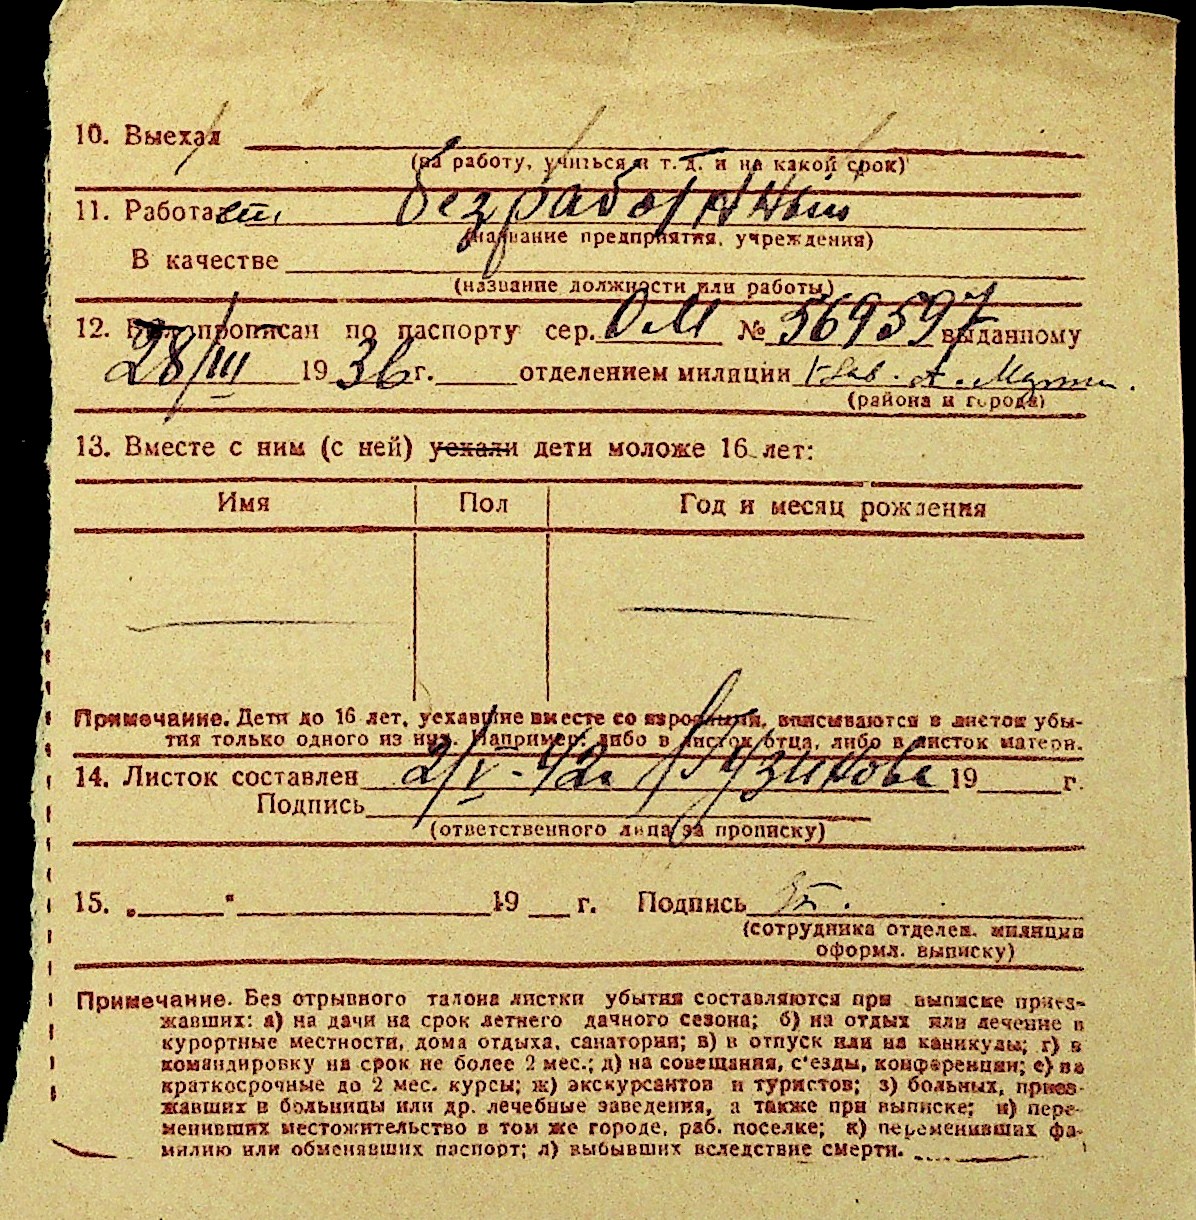 10. Выехал
(на работу, учиться и т. д. и на какой срок)
11. Работает безработный
(название предприятия, учреждения)
В качестве
(название должности или работы)
12. Был прописан по паспорту сер. ОМ № 569597 выданному
28/III 1936 г. отделением милиции
(района и города)
13. Вместе с ним (с ней) уехали дети моложе 16 лет:
Имя Пол Год и месяц рождения
Примечание. Дети до 16 лет, уехавшие вместе со взрослыми, вписываются в листок убы-
тия только одного из них. Например: либо в листок отца, либо в листок матери.
14. Листок составлен 2/V-42г. 19 г.
Подпись
(ответственного лица за прописку)
15. „ " 19 г. Подпись
(сотрудника отделен. милиции
оформл. выписку)
Примечание. Без отрывного талона листки убытия составляются при выписке приез-
жавших: а) на дачи на срок летнего дачного сезона; б) на отдых или лечение в
курортные местности, дома отдыха, санатории; в) в отпуск или на каникулы; г) в
командировку на срок не более 2 мес.; д) на совещания, с'езды, конференции; е) на
краткосрочные до 2 мес. курсы; ж) экскурсантов и туристов; з) больных, приез-
жавших в больницы или др. лечебные заведения, а также при выписке; и) пере-
менивших местожительство в том же городе, раб. поселке; к) переменивших фа-
милию или обменявших паспорт; л) выбывших вследствие смерти.